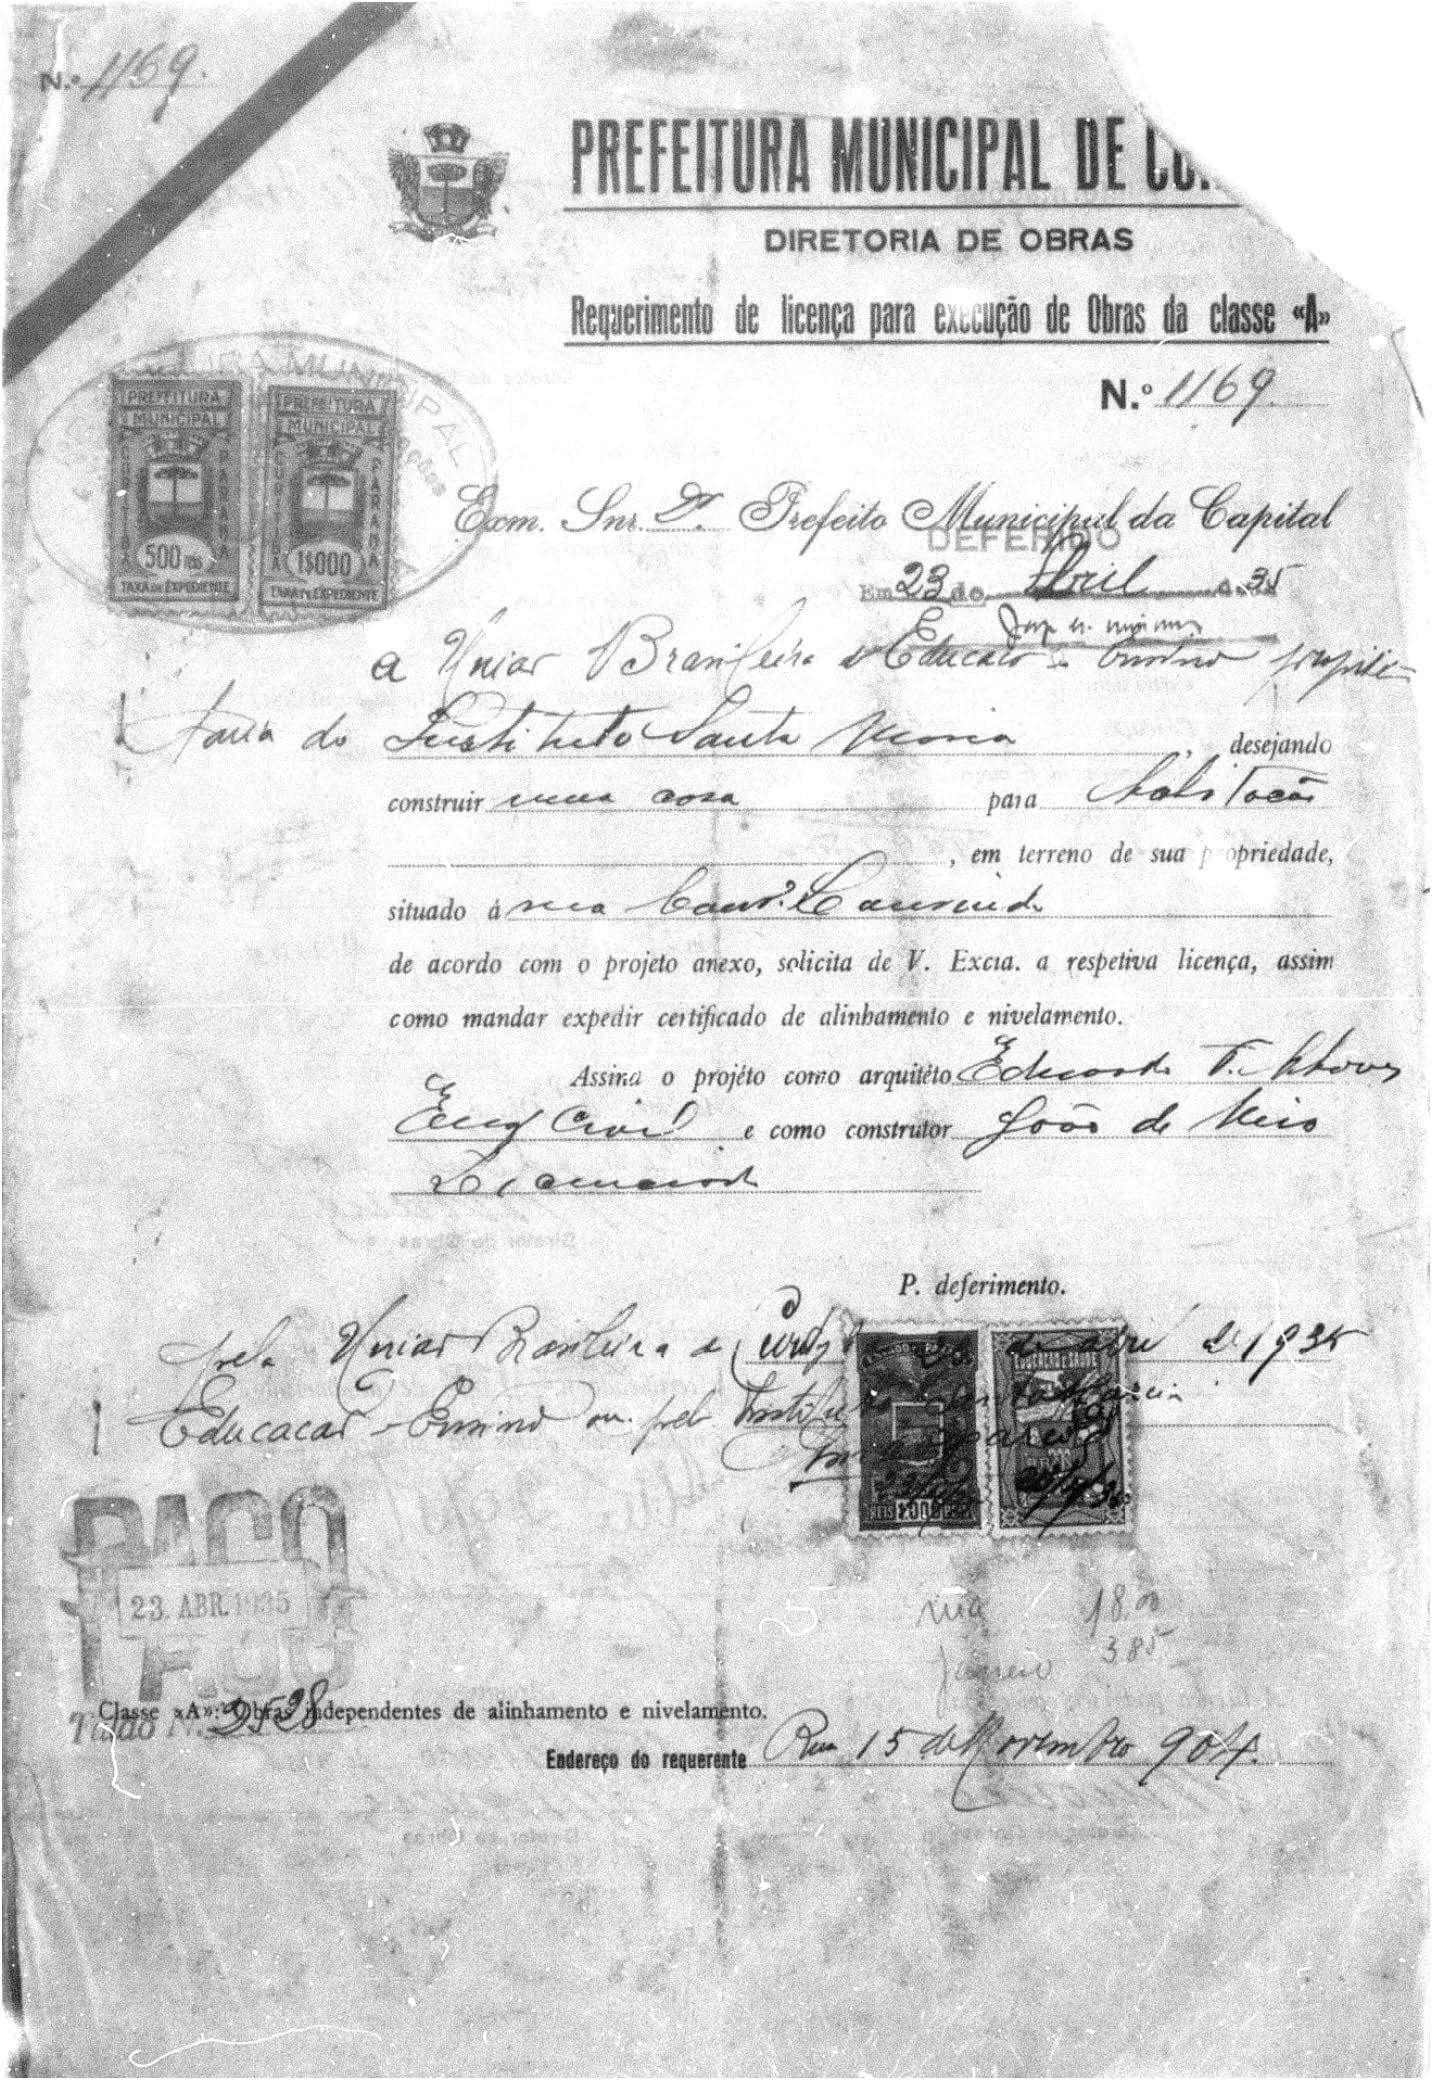 N.º 1169.
PREFEITURA MUNICIPAL DE CU
DIRETORIA DE OBRAS
Requerimento de licença para execução de Obras da classe «A»
N.º 1169.
PREFEITURA MUNICIPAL CURITIBA PARANÁ 500 RÉIS TAXA DE EXPEDIENTE
PREFEITURA MUNICIPAL CURITIBA PARANÁ 1$000 TAXA DE EXPEDIENTE
Exm. Snr. Dr. Prefeito Municipal da Capital
DEFERIDO
Em 23 de Abril 35
a União Brasileira de Educação e Ensino proprie-
taria do Instituto Santa Maria, desejando
construir uma casa para habitação
, em terreno de sua propriedade,
situado á rua Cons.
de acordo com o projeto anexo, solicita de V. Excia. a respetiva licença, assim
como mandar expedir certificado de alinhamento e nivelamento.
Assina o projéto como arquitéto Eduardo F. Chaves
Eng Civil e como construtor João de Mio
P. deferimento.
pela União Brasileira de de abril de 1935
Educação e Ensino pelo Instituto Santa Maria
EDUCAÇÃO E SAUDE
BRASIL
PAGO
23. ABR. 1935
Talão N. 2528
Classe «A»: Obras independentes de alinhamento e nivelamento.
rua 18.00
3 85
Endereço do requerente Rua 15 de Novembro 904.